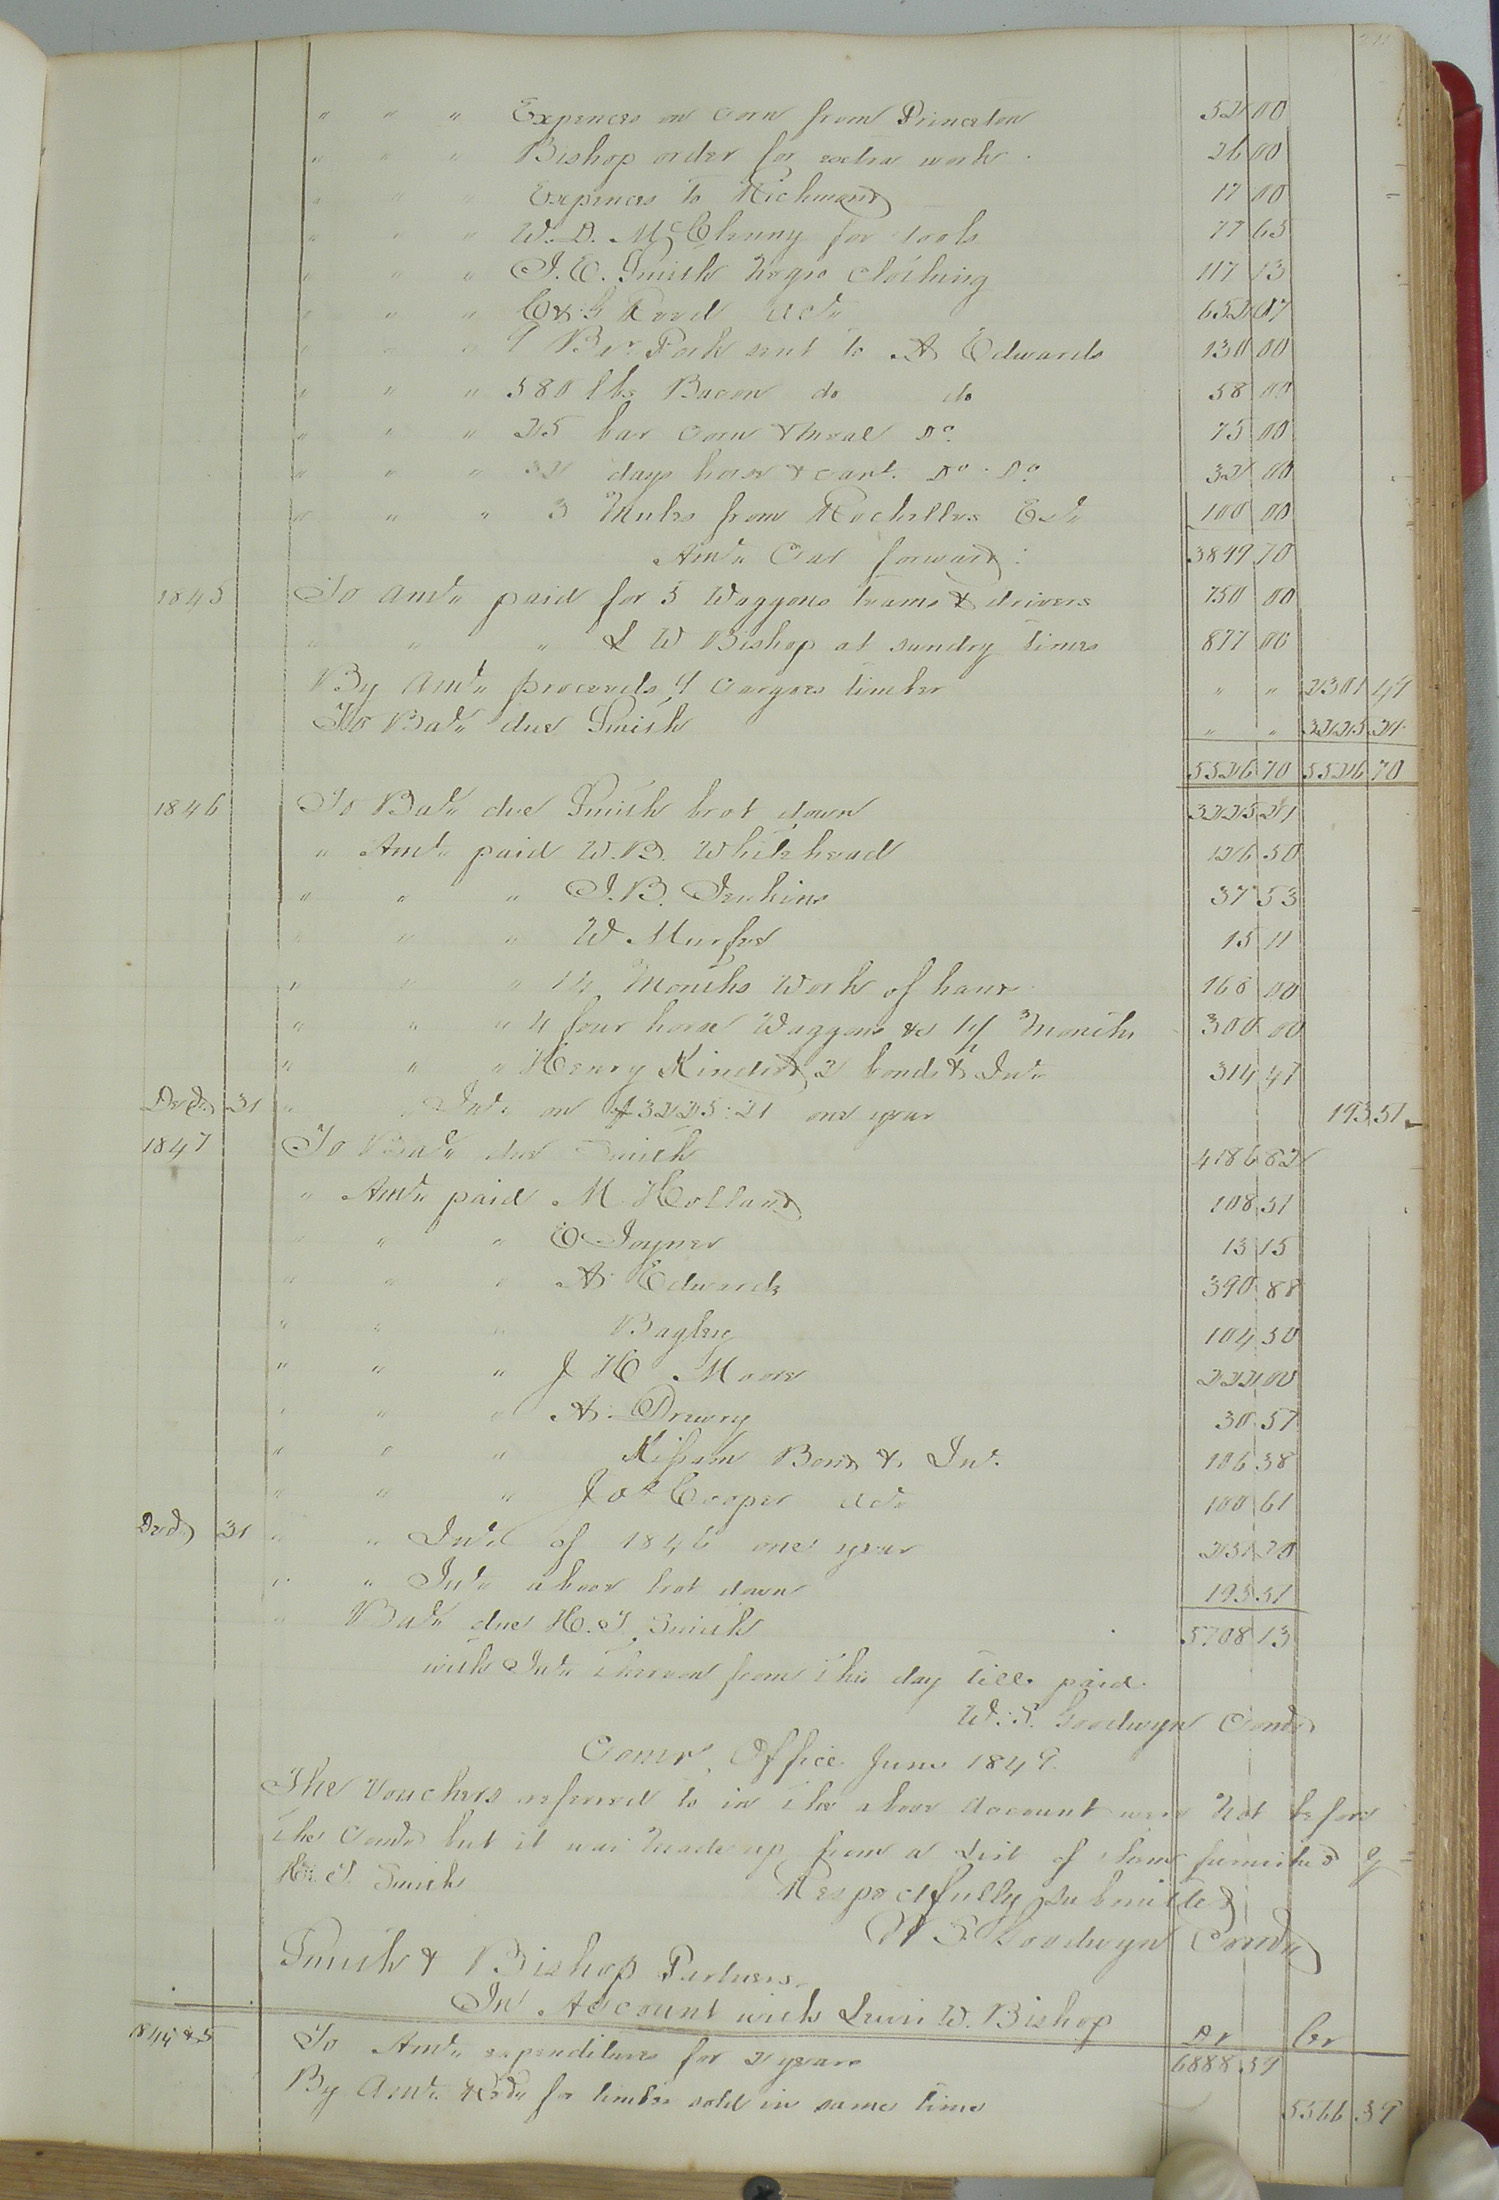 " " " Expences on Corn from Princeton 52 00
" " " Bishop order for extra work 26 00
" " " Expences to Richmond 17 00
" " " W. D. McClenny for tools 77 63
" " " J. E. Smith Negro Clothing 117 13
" " " Acts 652 07
" " " 9 Brs Pork sent to A Edwards 130 00
" " " 580 lbs Bacon do do 58 00
" " " 25 bar Corn & meal Do 75 00
" " " 32 days horse & cart. Do Do 32 00
" " " 3 Mules from Rochelles Este 100 00
Amt. Car forward 3849 70
1845 To Amt. paid for 5 Waggons teams & drivers 750 00
" " " L W Bishop at sundry times 877 00
By Amt. proceeds 4 cargoes timber " " 2301 49
To Bal. due Smith " " 3225 21
5526 70 5526 70
1846 To Bal. due Smith brot down 3225 21
" Amt. paid W. B. Whitehead 126 50
" " " J. B. Jenkins 37 53
" " " W Murfee 15 11
" " " 14 Months Work of hans 168 00
" " " 4 four horse Waggons &c 1 1/2 Months 300 00
" " " Henry Kindred 2 bonds & Int. 314 47
Decr. 31 " " Int. on $3225:21 one year 193 51
1847 To Bal. due Smith 4186 82
" Amt. paid M Holland 108 51
" " " E Joyner 13 15
" " " A. Edwards 390 88
" " " Bagley 104 50
" " " J H Moore 222 00
" " " A. Drewry 30 57
" " " Kissam Bond & Int. 106 38
" " " Jos Cooper acts 100 61
Decr. 31 " " Int. of 1846 one year 231 20
" " Int. above brot down 193 51
" Bal. due H. T. Smith 5708 13
with Int. thereon from this day till paid
W. S. Goodwyn Comr
Comrs. Office June 1849.
The Vouchers referred to in the above Account were Not before
the Comr but it was made up from a List of them furnished by
H. T. Smith Respectfully submitted
W S Goodwyn Comr
Smith & Bishop Partners
In Account with Lewis W. Bishop
Dr Cr
1844 & 5 To Amt. expenditures for 2 years 6888 39
By Amt. for timber sold in same time 5366 39